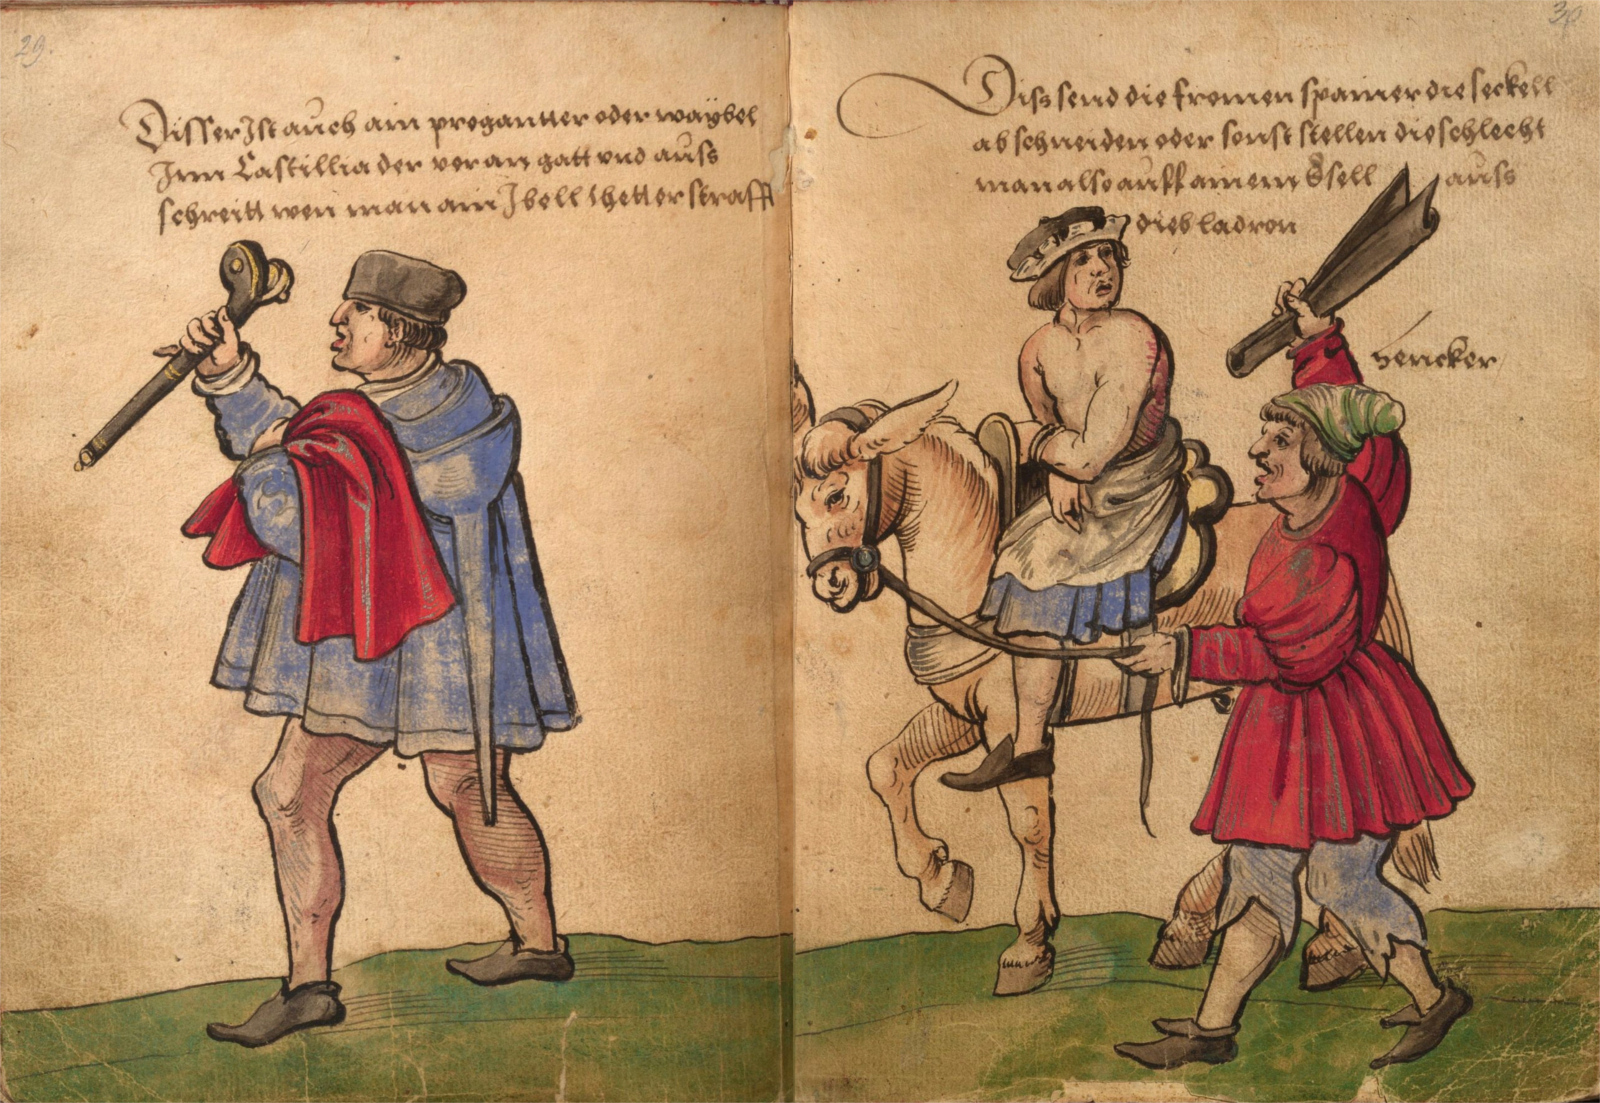 29.
Disser Ist auch ain progantter oder waÿbel
Inn Castillia der voran gatt vnd auss
schreitt wen man ain Ibell thetter strafft
30
Diss send die fromen spanier die seckell
ab schneiden oder sonst stellen die schlecht
man also auff ainem Essell auss
dieb ladron
hencker